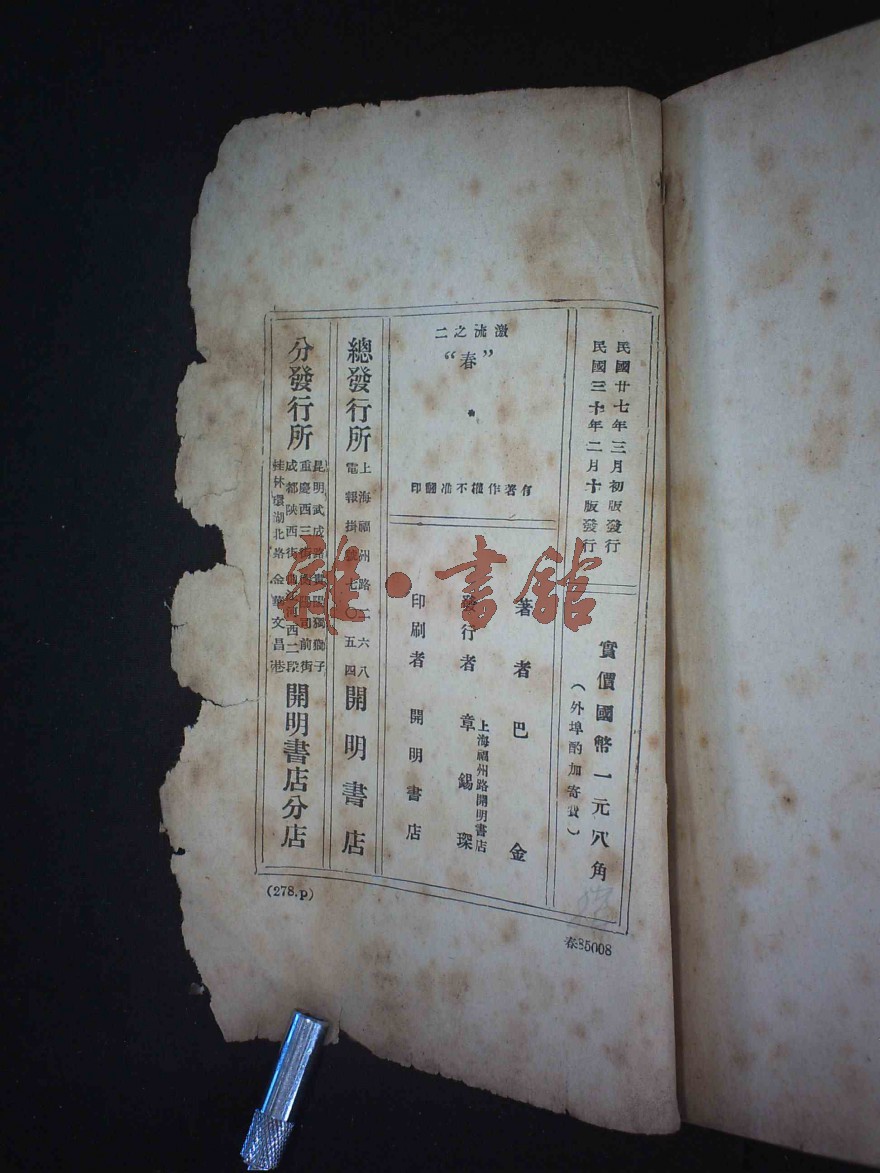 民國廿七年三月初版發行
民國三十年二月十版發行
實價國幣一元六角
（外埠酌加寄費）
激流之二
“春”
有著作權不准翻印
著者 巴金
發行者 章錫琛
上海福州路開明書店
印刷者 開明書店
總發行所
上海福州路二六八
電報掛號七〇五四
開明書店
分發行所
昆明武成路 貴陽獨獅子
重慶西三街
成都陝西街
桂林環湖北路 金華文昌巷
開明書店分店
(278.P)
春85008
雜·書館